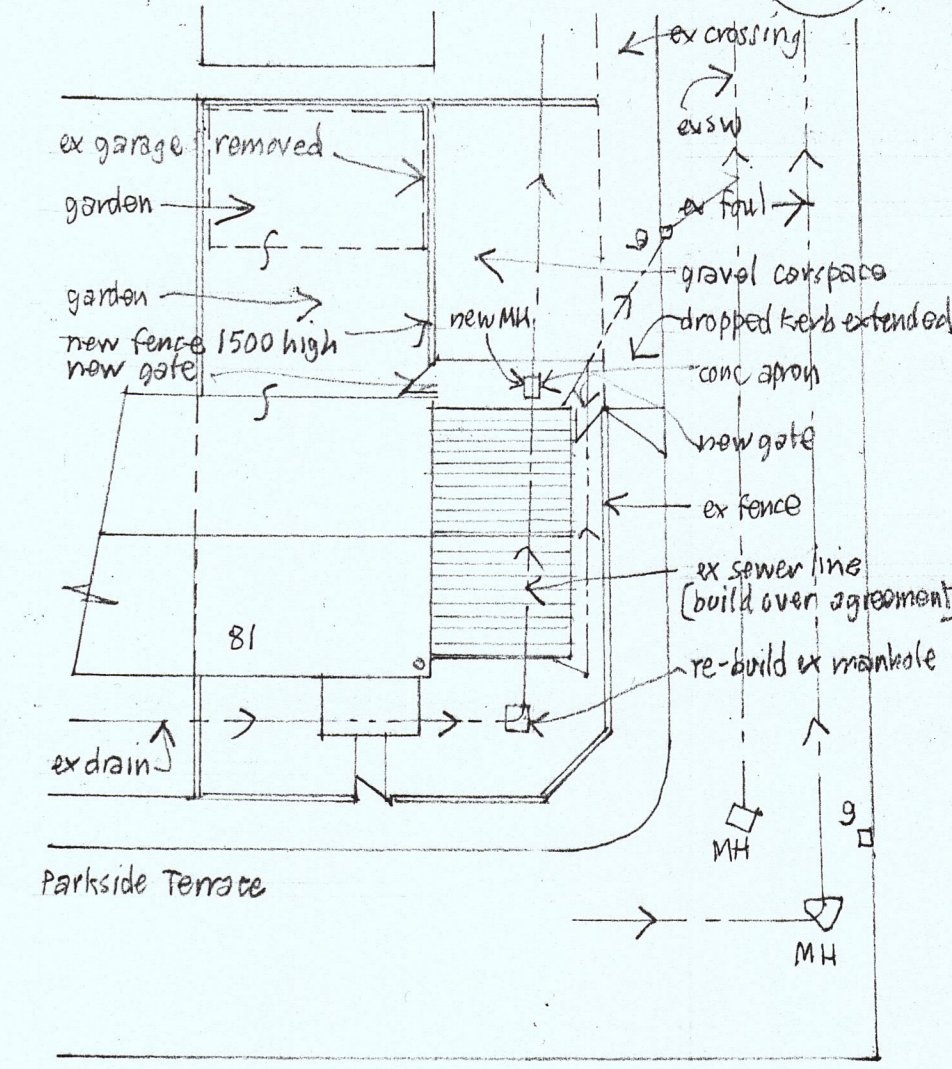 ex crossing
ex sw
ex garage removed
garden
ex foul
g
gravel carspace
garden
new MH
dropped kerb extended
new fence 1500 high
new gate
conc apron
new gate
ex fence
ex sewer line
(build over agreement
81
re-build ex manhole
ex drain
g
MH
Parkside Terrace
MH